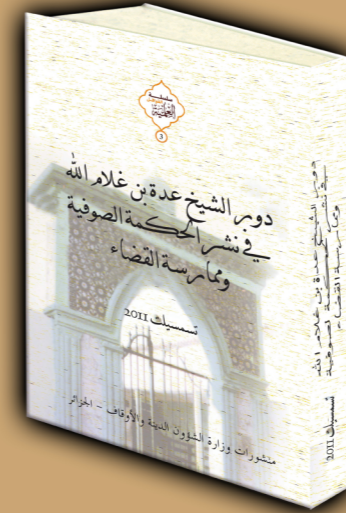 سلسلة
3
دور الشيخ عدة بن غلام الله
في نشر الحكمة الصوفية
وممارسة القضاء
تسمسيلت 2011
منشورات وزارة الشؤون الدينية والأوقاف - الجزائر
دور الشيخ عدة بن غلام الله
في نشر الحكمة الصوفية
وممارسة القضاء
تسمسيلت 2011